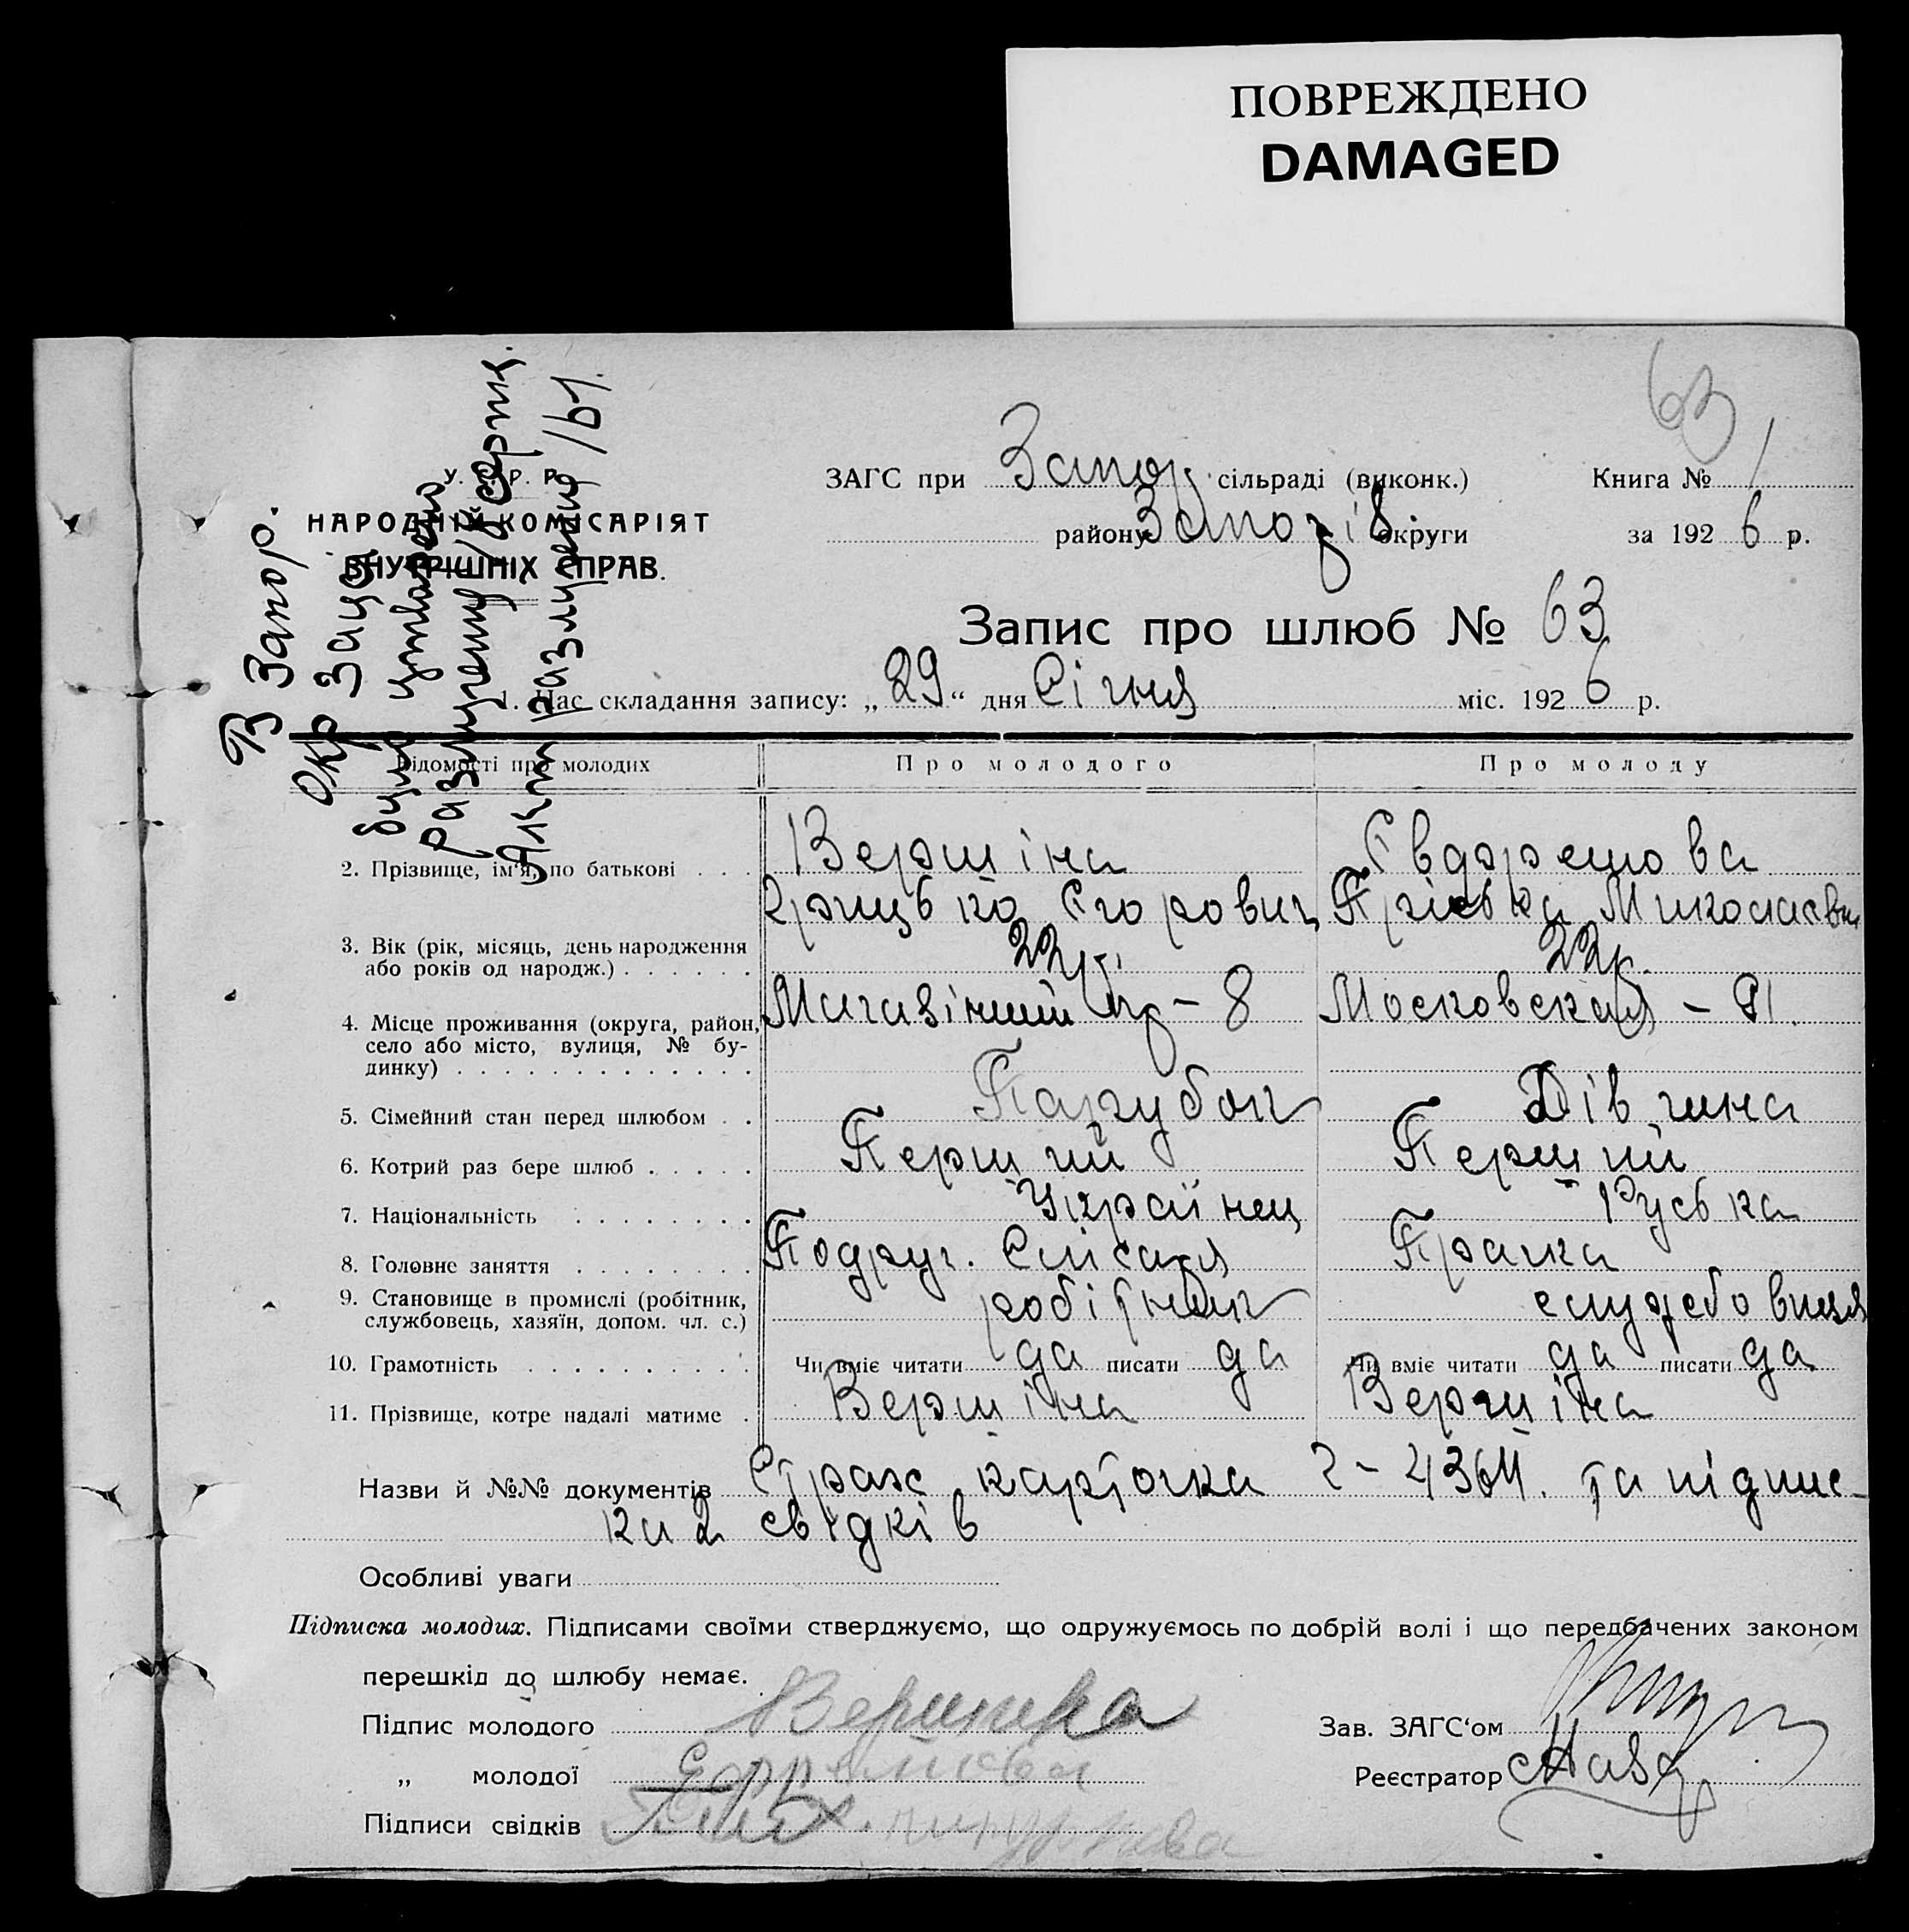 ПОВРЕЖДЕНО
DAMAGED
63
У. С. Р. Р.
НАРОДНІЙ КОМІСАРІЯТ
ВНУТРІШНІХ СПРАВ.
ЗАГС при Запор сільраді (виконк.) Книга № 1
району Запоріз округи за 1926 р.
Запис про шлюб № 63
1. Час складання запису: „29“ дня Січня міс. 1926 р.
В Запор.
Окр Загсі
було
18 серпня
Акт 167.
Відомості про молодих Про молодого Про молоду
2. Прізвище, ім'я, по батькові . . . Вершіна Євдремова
Грицько Єгорович Прiська Миколаевна
3. Вік (рік, місяць, день народження або років од народж.) . . . . . . 22 р. 22 р.
4. Місце проживання (округа, район, село або місто, вулиця, № будинку) . . . . . . . . . . . . . Магазінний - 8 Московская - 91.
5. Сімейний стан перед шлюбом . . Парубок Дівчина
6. Котрий раз бере шлюб . . . . . Перший Перший
7. Національність . . . . . . . . Українец Руська
8. Головне заняття . . . . . . . . Подруч. Слісаря Прачка
9. Становище в промислі (робітник, службовець, хазяїн, допом. чл. с.) робітник
10. Грамотність . . . . . . . . . . Чи вміє читати да писати да Чи вміє читати да писати да
11. Прізвище, котре надалі матиме . Вершіна Вершіна
Назви й №№ документів Страх карточка та підпис-
ка 2 свідків
Особливі уваги
Підписка молодих. Підписами своїми стверджуємо, що одружуємось по добрій волі і що передбачених законом
перешкід до шлюбу немає.
Підпис молодого Зав. ЗАГС'ом
„ молодої Реєстратор
Підписи свідків